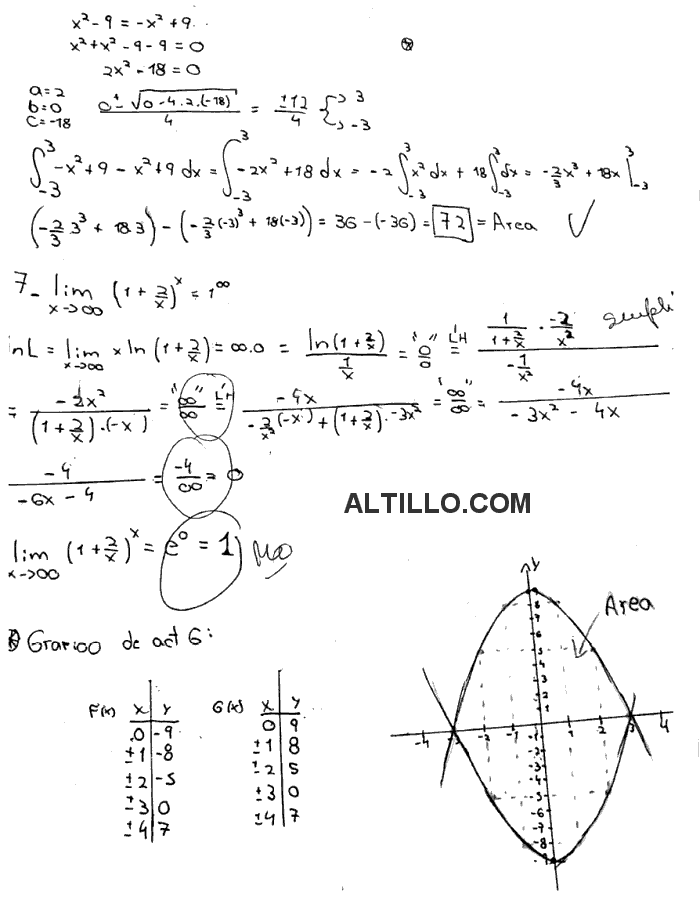 x² - 9 = -x² + 9
x² + x² - 9 - 9 = 0
2x² - 18 = 0
a = 2
b = 0
c = -18
0 ± √(0 - 4.2.(-18)) / 4 = ±12/4 { → 3 → -3
∫₋₃³ -x² + 9 - x² + 9 dx = ∫₋₃³ -2x² + 18 dx = -2 ∫₋₃³ x² dx + 18 ∫₋₃³ dx = -2/3 x³ + 18x |₋₃³
(-2/3 3³ + 18 3) - (-2/3 (-3)³ + 18(-3)) = 36 - (-36) = 72 = Area ✓
7- lim x→∞ (1 + 2/x)^x = 1^∞
ln L = lim x→∞ x ln (1 + 2/x) = ∞.0 = ln(1 + 2/x) / (1/x) = "0/0" L'H = (1/(1 + 2/x) · -2/x²) / (-1/x²)
= -2x² / ((1 + 2/x).(-x)) = "∞/∞" L'H = -4x / (-2/x² (-x) + (1 + 2/x).-3x²) = "∞/∞" = -4x / (-3x² - 4x)
-4 / (-6x - 4) = -4/∞ = 0
ALTILLO.COM
lim x→∞ (1 + 2/x)^x = e⁰ = 1
Grafico de act 6:
F(x) x y
0 -9
±1 -8
±2 -5
±3 0
±4 7
G(x) x y
0 9
±1 8
±2 5
±3 0
±4 7
y
Area
9
8
5
4
3
2
1
-4 -3 -2 -1 1 2 3 4
-1
-2
-3
-4
-5
-6
-7
-8
-9